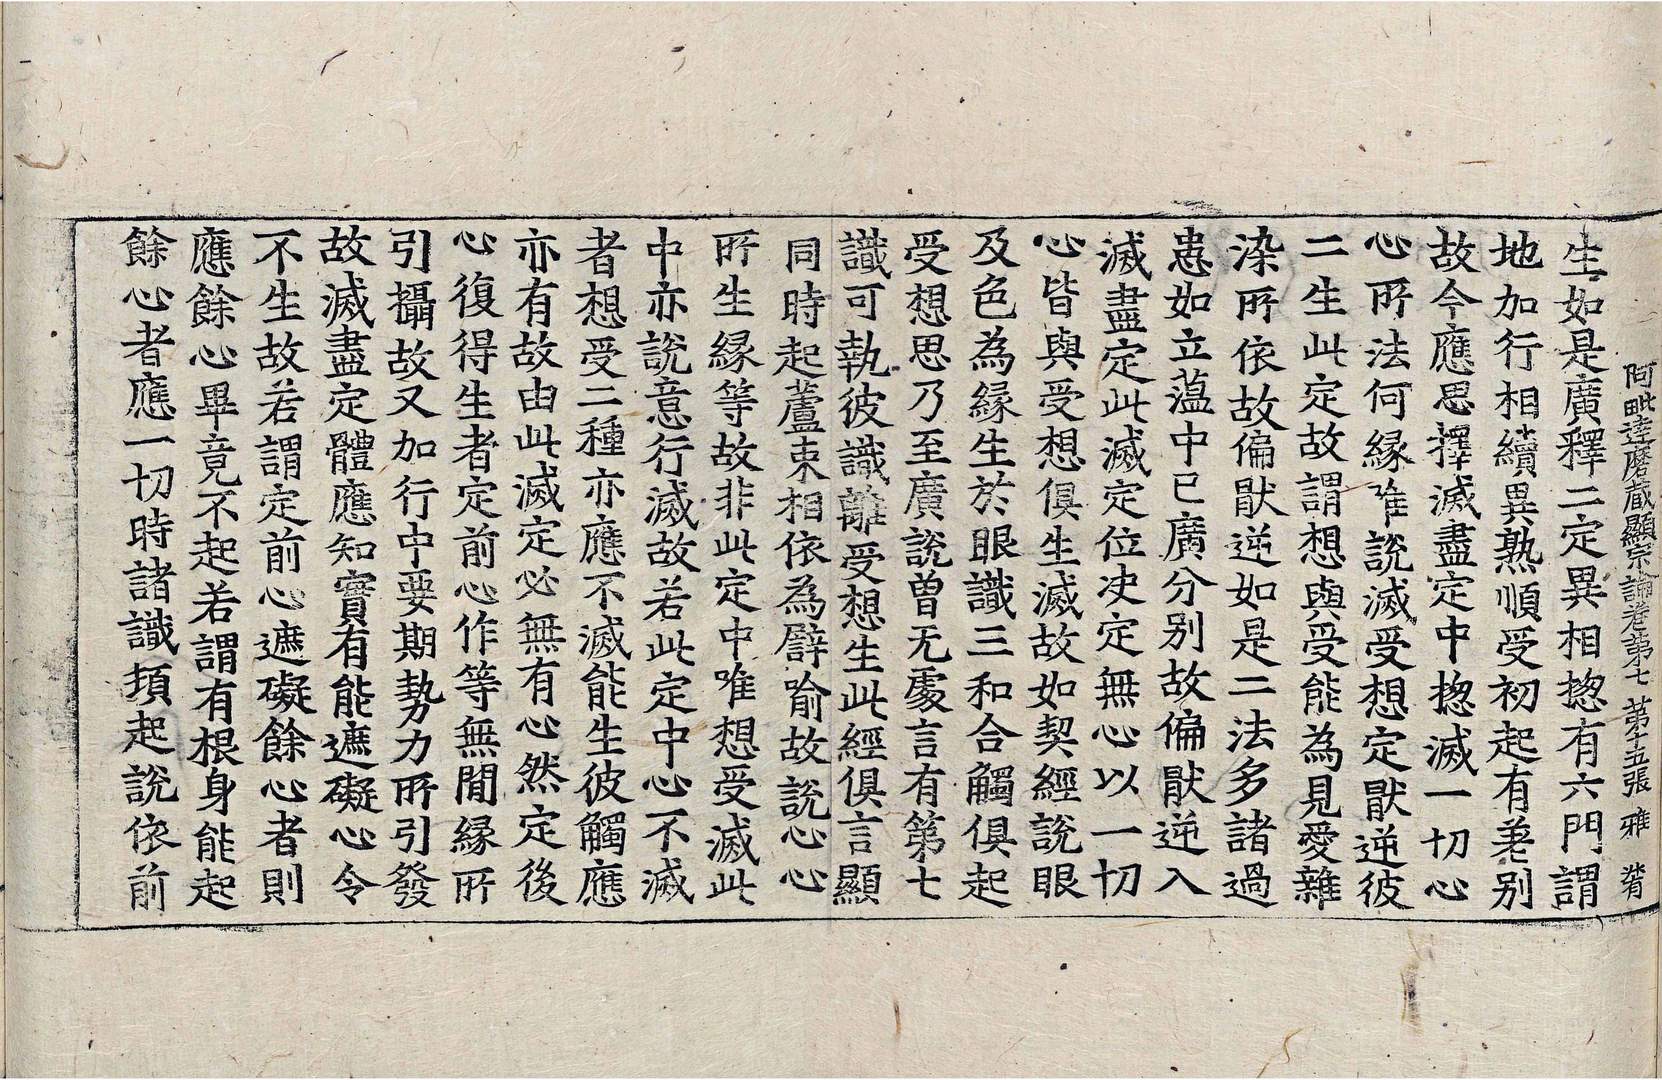 阿毗達磨藏顯宗論卷第七 第十五張 雅
生如是廣釋二定異相揔有六門謂
地加行相續異熟順受初起有差別
故今應思擇滅盡定中揔滅一切心
心所法何緣唯說滅受想定猒逆彼
二生此定故謂想與受能為見愛雜
染所依故偏猒逆如是二法多諸過
患如立薀中已廣分別故偏猒逆入
滅盡定此滅定位决定無心以一切
心皆與受想俱生滅故如契經說眼
及色為緣生於眼識三和合觸俱起
受想思乃至廣說曾无處言有第七
識可執彼識離受想生此經俱言顯
同時起蘆束相依為辟喻故說心心
所生緣等故非此定中唯想受滅此
中亦說意行滅故若此定中心不滅
者想受二種亦應不滅能生彼觸應
亦有故由此滅定必無有心然定後
心復得生者定前心作等無間緣所
引攝故又加行中要期勢力所引發
故滅盡定體應知實有能遮礙心令
不生故若謂定前心遮礙餘心者則
應餘心畢竟不起若謂有根身能起
餘心者應一切時諸識頓起說依前